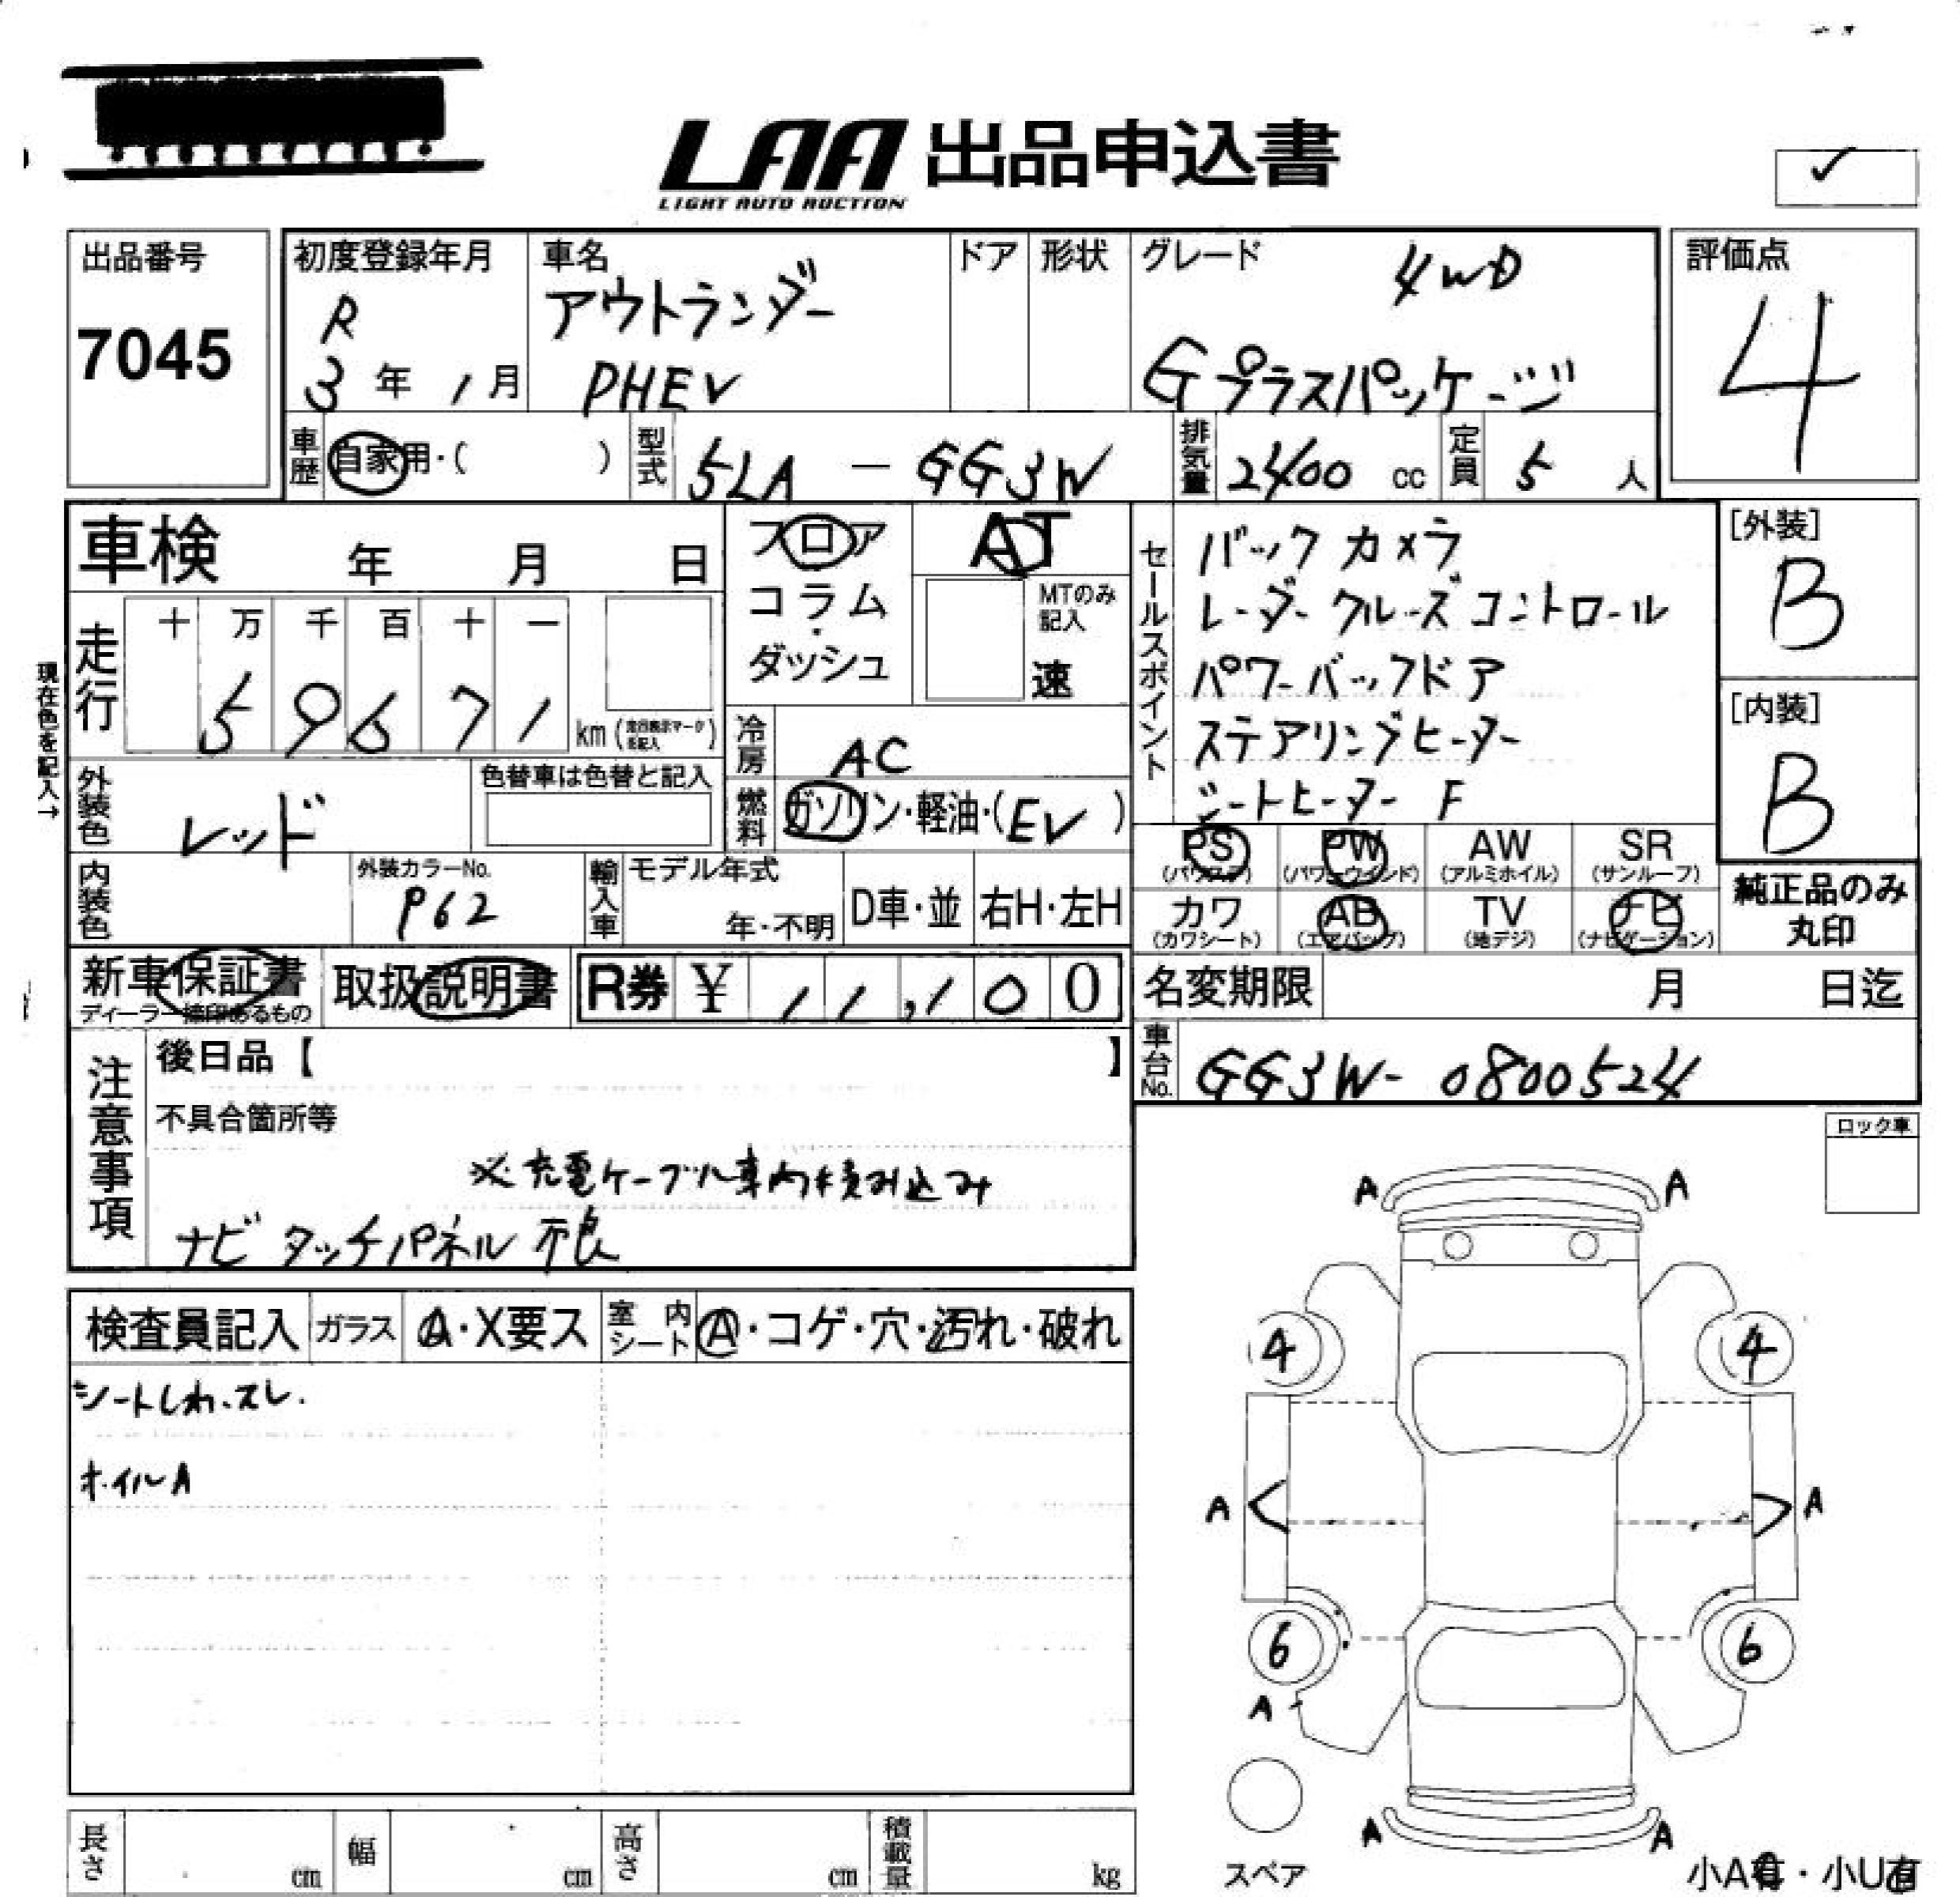 LAA 出品申込書
LIGHT AUTO AUCTION
✓
出品番号
7045
初度登録年月
R
3年1月
車名
アウトランダー
PHEV
ドア
形状
グレード
4WD
Gプラスパッケージ
評価点
4
車歴
自家用・( )
型式
5LA-GG3W
排気量
2400 cc
定員
5 人
車検 年 月 日
フロア
コラム・
ダッシュ
AT
MTのみ記入
速
現在色を記入→
走行
十 万 千 百 十 一
5 9 6 7 1
km
冷房
AC
燃料
ガソリン・軽油・(EV)
外装色
レッド
色替車は色替と記入
内装色
外装カラーNo.
P62
輸入車
モデル年式
年・不明
D車・並
右H・左H
セールスポイント
バックカメラ
レーダークルーズコントロール
パワーバックドア
ステアリングヒーター
シートヒーター F
[外装]
B
[内装]
B
PS
(パワステ)
PW
(パワーウインド)
AW
(アルミホイル)
SR
(サンルーフ)
カワ
(カワシート)
AB
(エアバッグ)
TV
(地デジ)
ナビ
(ナビゲーション)
純正品のみ
丸印
新車保証書
ディーラー捺印あるもの
取扱説明書
R券 ¥ 11,100
名変期限 月 日迄
車台No.
GG3W-0800524
注意事項
後日品【 】
不具合箇所等
※充電ケーブル車内積み込み
ナビ タッチパネル 不良
ロック車
検査員記入
ガラス
A・X要ス
室内シート
A・コゲ・穴・汚れ・破れ
シートしわ、スレ.
ホイルA
A A
4 4
A A
6 6
A
A A
スペア
小A有・小U有
長さ cm
幅 cm
高さ cm
積載量 kg